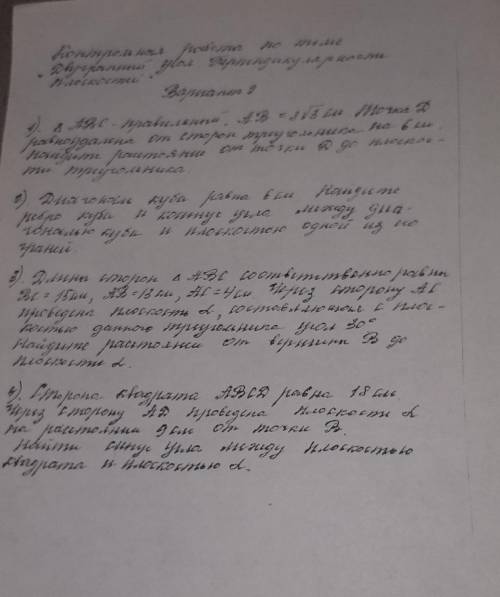 Контрольная работа по теме
„Двугранный угол. Перпендикулярность
плоскостей"
Вариант
1). Δ ABC - правильный. AB = см Точка D
равноудалена от сторон треугольника на см.
Найдите расстояние от точки D до плоскос-
ти треугольника.
2) Диагональ куба равна 6 см Найдите
ребро куба и косинус угла между диа-
гональю куба и плоскостью одной из его
граней.
3). Длины сторон Δ ABC соответственно равны
BC = 15 см, AB = 13 см, AC = 4 см Через сторону AC
проведена плоскость α, составляющая с плос-
костью данного треугольника угол 30°
Найдите расстояние от вершины B до
плоскости α.
4). Сторона квадрата ABCD равна 18 см.
Через сторону AD проведена плоскость α
на расстоянии 9 см от точки B.
Найти синус угла между плоскостью
квадрата и плоскостью α.